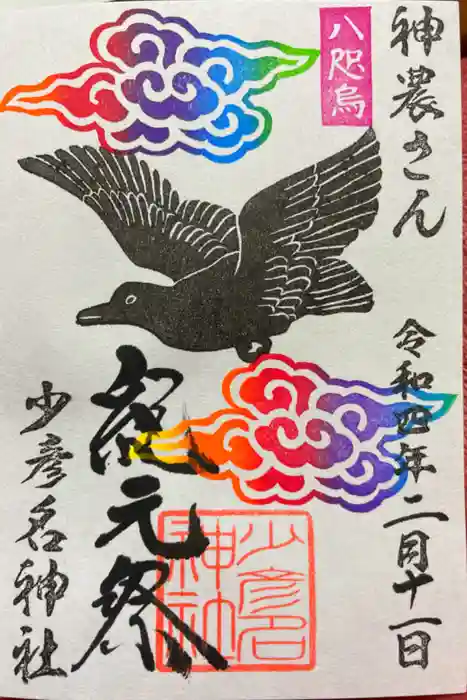 神農さん
八咫烏
令和四年二月十一日
紀元祭
少彦名神社
少彦名
神社